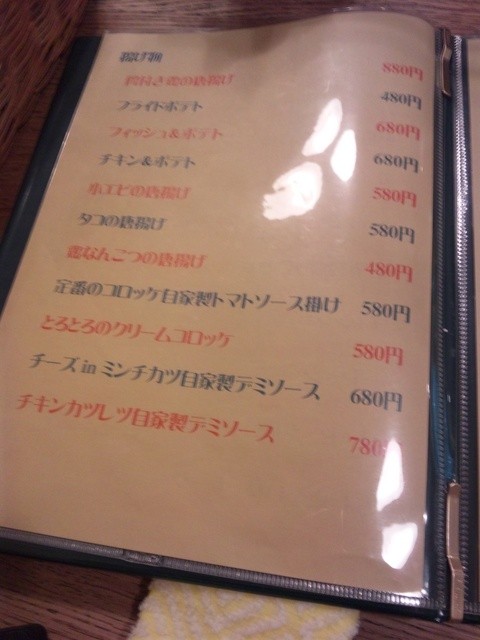 揚げ物
骨付き鶏の唐揚げ 880円
フライドポテト 480円
フィッシュ&ポテト 680円
チキン&ポテト 680円
小エビの唐揚げ 580円
タコの唐揚げ 580円
鶏なんこつの唐揚げ 480円
定番のコロッケ自家製トマトソース掛け 580円
とろとろのクリームコロッケ 580円
チーズinミンチカツ自家製デミソース 680円
チキンカツレツ自家製デミソース 780